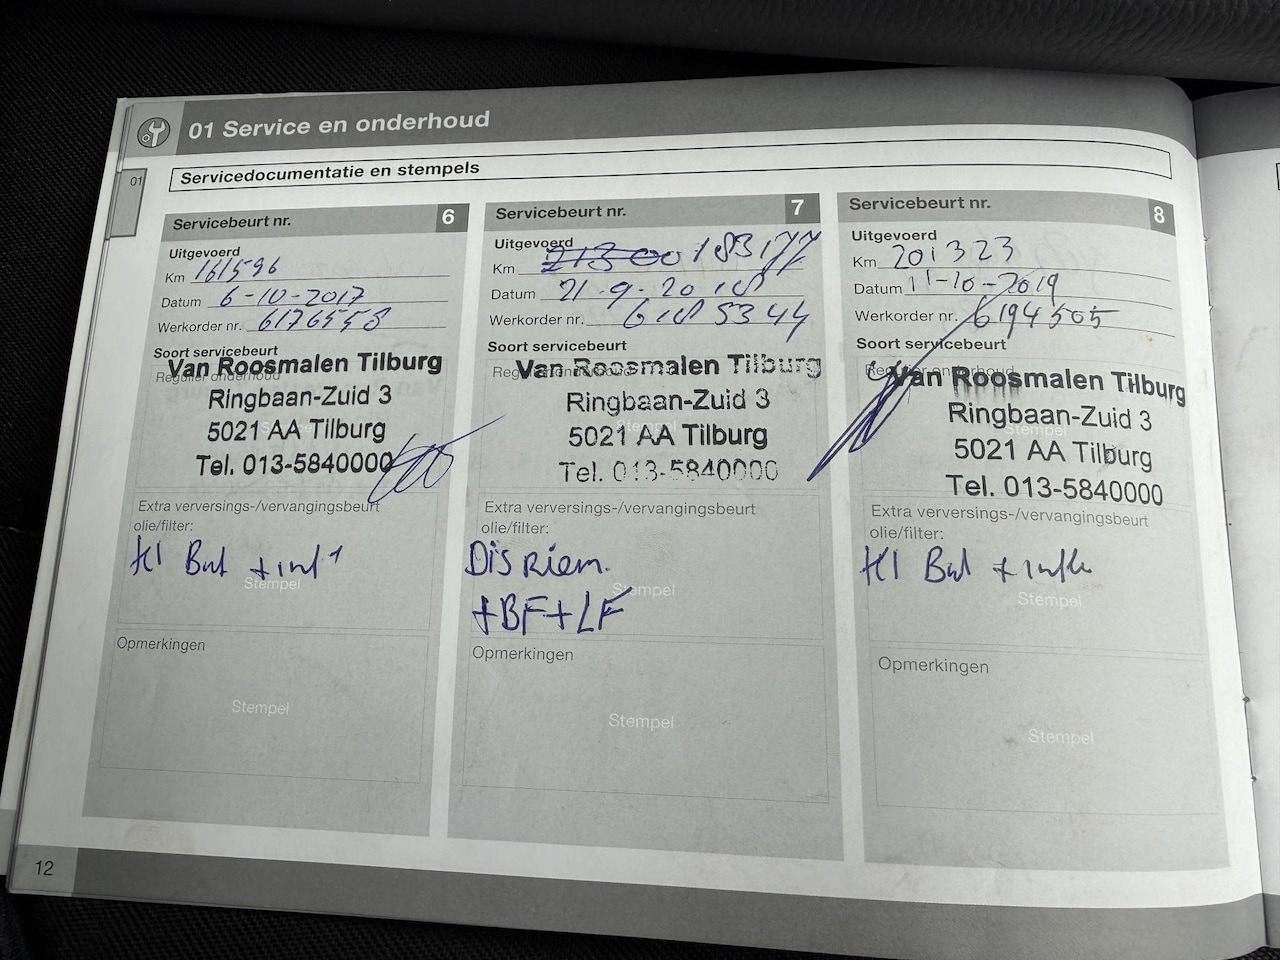 01 Service en onderhoud
01
Servicedocumentatie en stempels
Servicebeurt nr. 6
Uitgevoerd
Km 161596
Datum 6-10-2017
Werkorder nr. 6176558
Soort servicebeurt
Regulier onderhoud
Van Roosmalen Tilburg
Ringbaan-Zuid 3
5021 AA Tilburg
Tel. 013-5840000
Extra verversings-/vervangingsbeurt
olie/filter:
Stempel
Opmerkingen
Stempel
Servicebeurt nr. 7
Uitgevoerd
Km 183177
Datum 21-9-2018
Werkorder nr. 6185344
Soort servicebeurt
Van Roosmalen Tilburg
Ringbaan-Zuid 3
5021 AA Tilburg
Tel. 013-5840000
Extra verversings-/vervangingsbeurt
olie/filter:
Dis Riem.
+BF+LF
Stempel
Opmerkingen
Stempel
Servicebeurt nr. 8
Uitgevoerd
Km 201323
Datum 11-10-2019
Werkorder nr. 6194505
Soort servicebeurt
Van Roosmalen Tilburg
Ringbaan-Zuid 3
5021 AA Tilburg
Tel. 013-5840000
Extra verversings-/vervangingsbeurt
olie/filter:
Stempel
Opmerkingen
Stempel
12